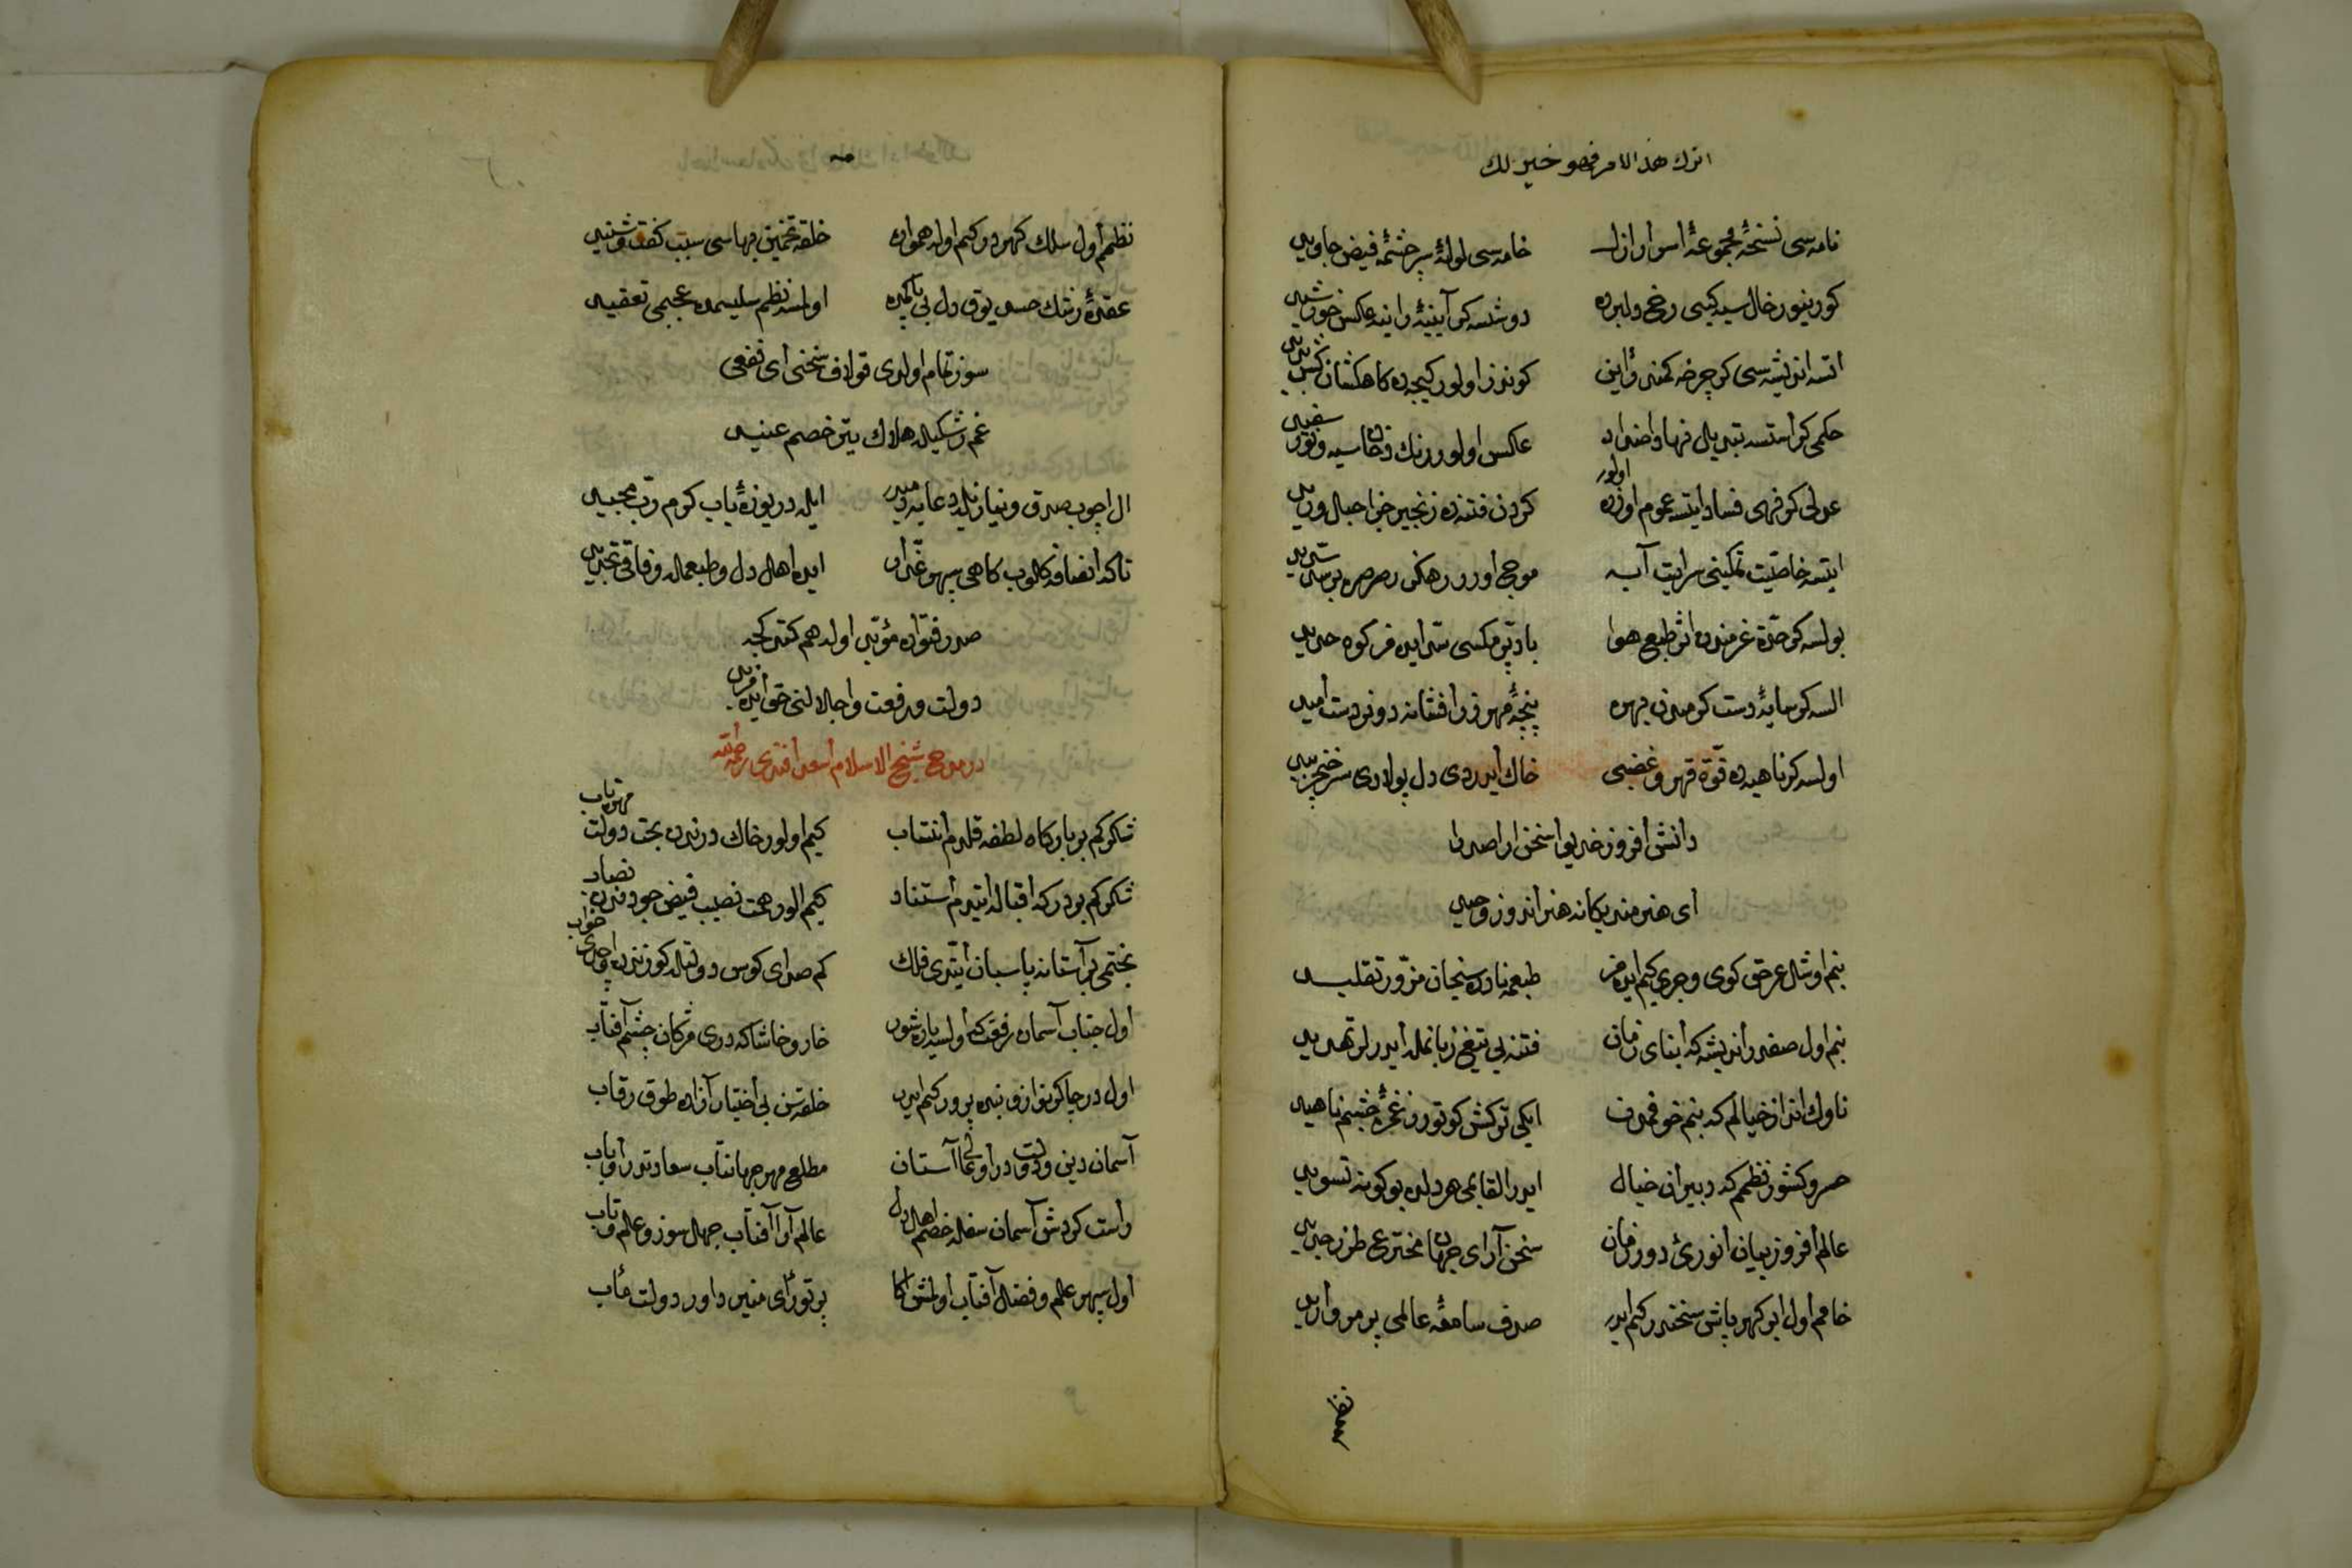 اترك هذا الامر فهو خير لك
نامه سی نسخهٔ مجموعهٔ اسرار ازل خامه سی لولهٔ سرچشمهٔ فیض جاوید
کورینور خال سیه کبی رخ دلبرده دوشسه کر آیینهٔ راینه عکس خورشید
اتسه اندیشه سی کر چرخه کمند رأین کوندز اولور کیجه ده کاهکشان
حکمی کر استسه تبدیل نهاد اضداد عکس اولور رنك رخان سیه و نور سفید
عدلی کر نهی فساد ایتسه عموم اوزره اولور کردن فتنه ده زنجیر جزا حبل ورید
ایتسه خاصیت تمکینی سرایت آبه موج اورور رهکذر صرصره بر سد سدید
بولسه کر حدّة عزمندن اثر طبع هوا باد پر مکسی سد ایده مز کوه حدید
السه کر مایهٔ دست کرمندن بهره پنجهٔ مهر زر افشانه دونر دست امید
اولسه کر ناهیده قوّة قهر و غضبی خاك ایدردی دل پولادی سر خنجر بید
دانش افروز خدیوا سخن ارا صدرا
ای هنرمند یکانه هنر اندوز وحید
بنم اوشال عرق کوی وجری کیم ایده مز طبعمه نادره سنجان مزوّر تقلید
بنم اول صفدر اندیشه که ابنای زمان فتنه یی تیغ زبانمله ایدرلر تهدید
ناوك انداز خیالم که بنم خوفمدن ایکی ترکش کوتورر غمزهٔ چشم ناهید
خسرو کشور نظمم که دبیران خیال ایدر القابمی هر دلده بو کونه تسوید
عالم افروز بیان انورئ دور زمان سخن آرای جهان مخترع طرز جدید
خامم اول ابر کهر پاش سخندر کیم ایدر صدف سامعهٔ عالمی پر مروارید
نظم
نظمم اول سلك کهردر کیم اوله همواره خلقه تخمین بهاسی سبب کفت و شنید
عقدهٔ زلفك حسد یوق دل بی اولمسه نظم سلیسمده عجبمی تعقید
سوز تمام اولدی قو لاف سخنی ای نفعی
غم رشکیله هلاك یتر خصم عنید
ال اچوب صدق و نیازیله دعایه ایله دریوزهٔ باب کرم ربّ مجید
تا که انصافه کلوب کاهی سپهر غدّار ایده اهل دل و طبعمله وفاقی تجدید
صدر فتواده مؤبّد اوله هم کتدکجه
دولت و رفعت و اجلالنی حق ایده مزید
در مدح شیخ الاسلام اسعد افندی رحمة الله
شکر کم بر بارکاه لطفه قلدم انتساب کیم اولور خاك درندن بخت دولت مهره یاب
شکر کم بو درکه اقباله ایتدم استناد کیم الور همت نصیب فیض جودندن نصاب
بختمی بر آستانه پاسبان ایتدی فلك کم صدای کوس دولتله کوزندن خواب
اول جناب آسمان رفعت که اولسه یاد شور خار و خاشاکه دری مژکان چشم آفتاب
اول در جاکر نواز و بنده پرور کیم ایدر خلقه تن بی اختیار آزاده طوق رقاب
آسمان دین و دولت در او عالی آستان مطلع مهر جهانتاب سعادتدر او باب
راست کردش آسمان سفله خصم اهل دل عالم آرا آفتاب جهل سوز و علم تاب
اول سپهر علم و فضله آفتاب اولمش اکا پرتو رأی منیر داور دولت مآب